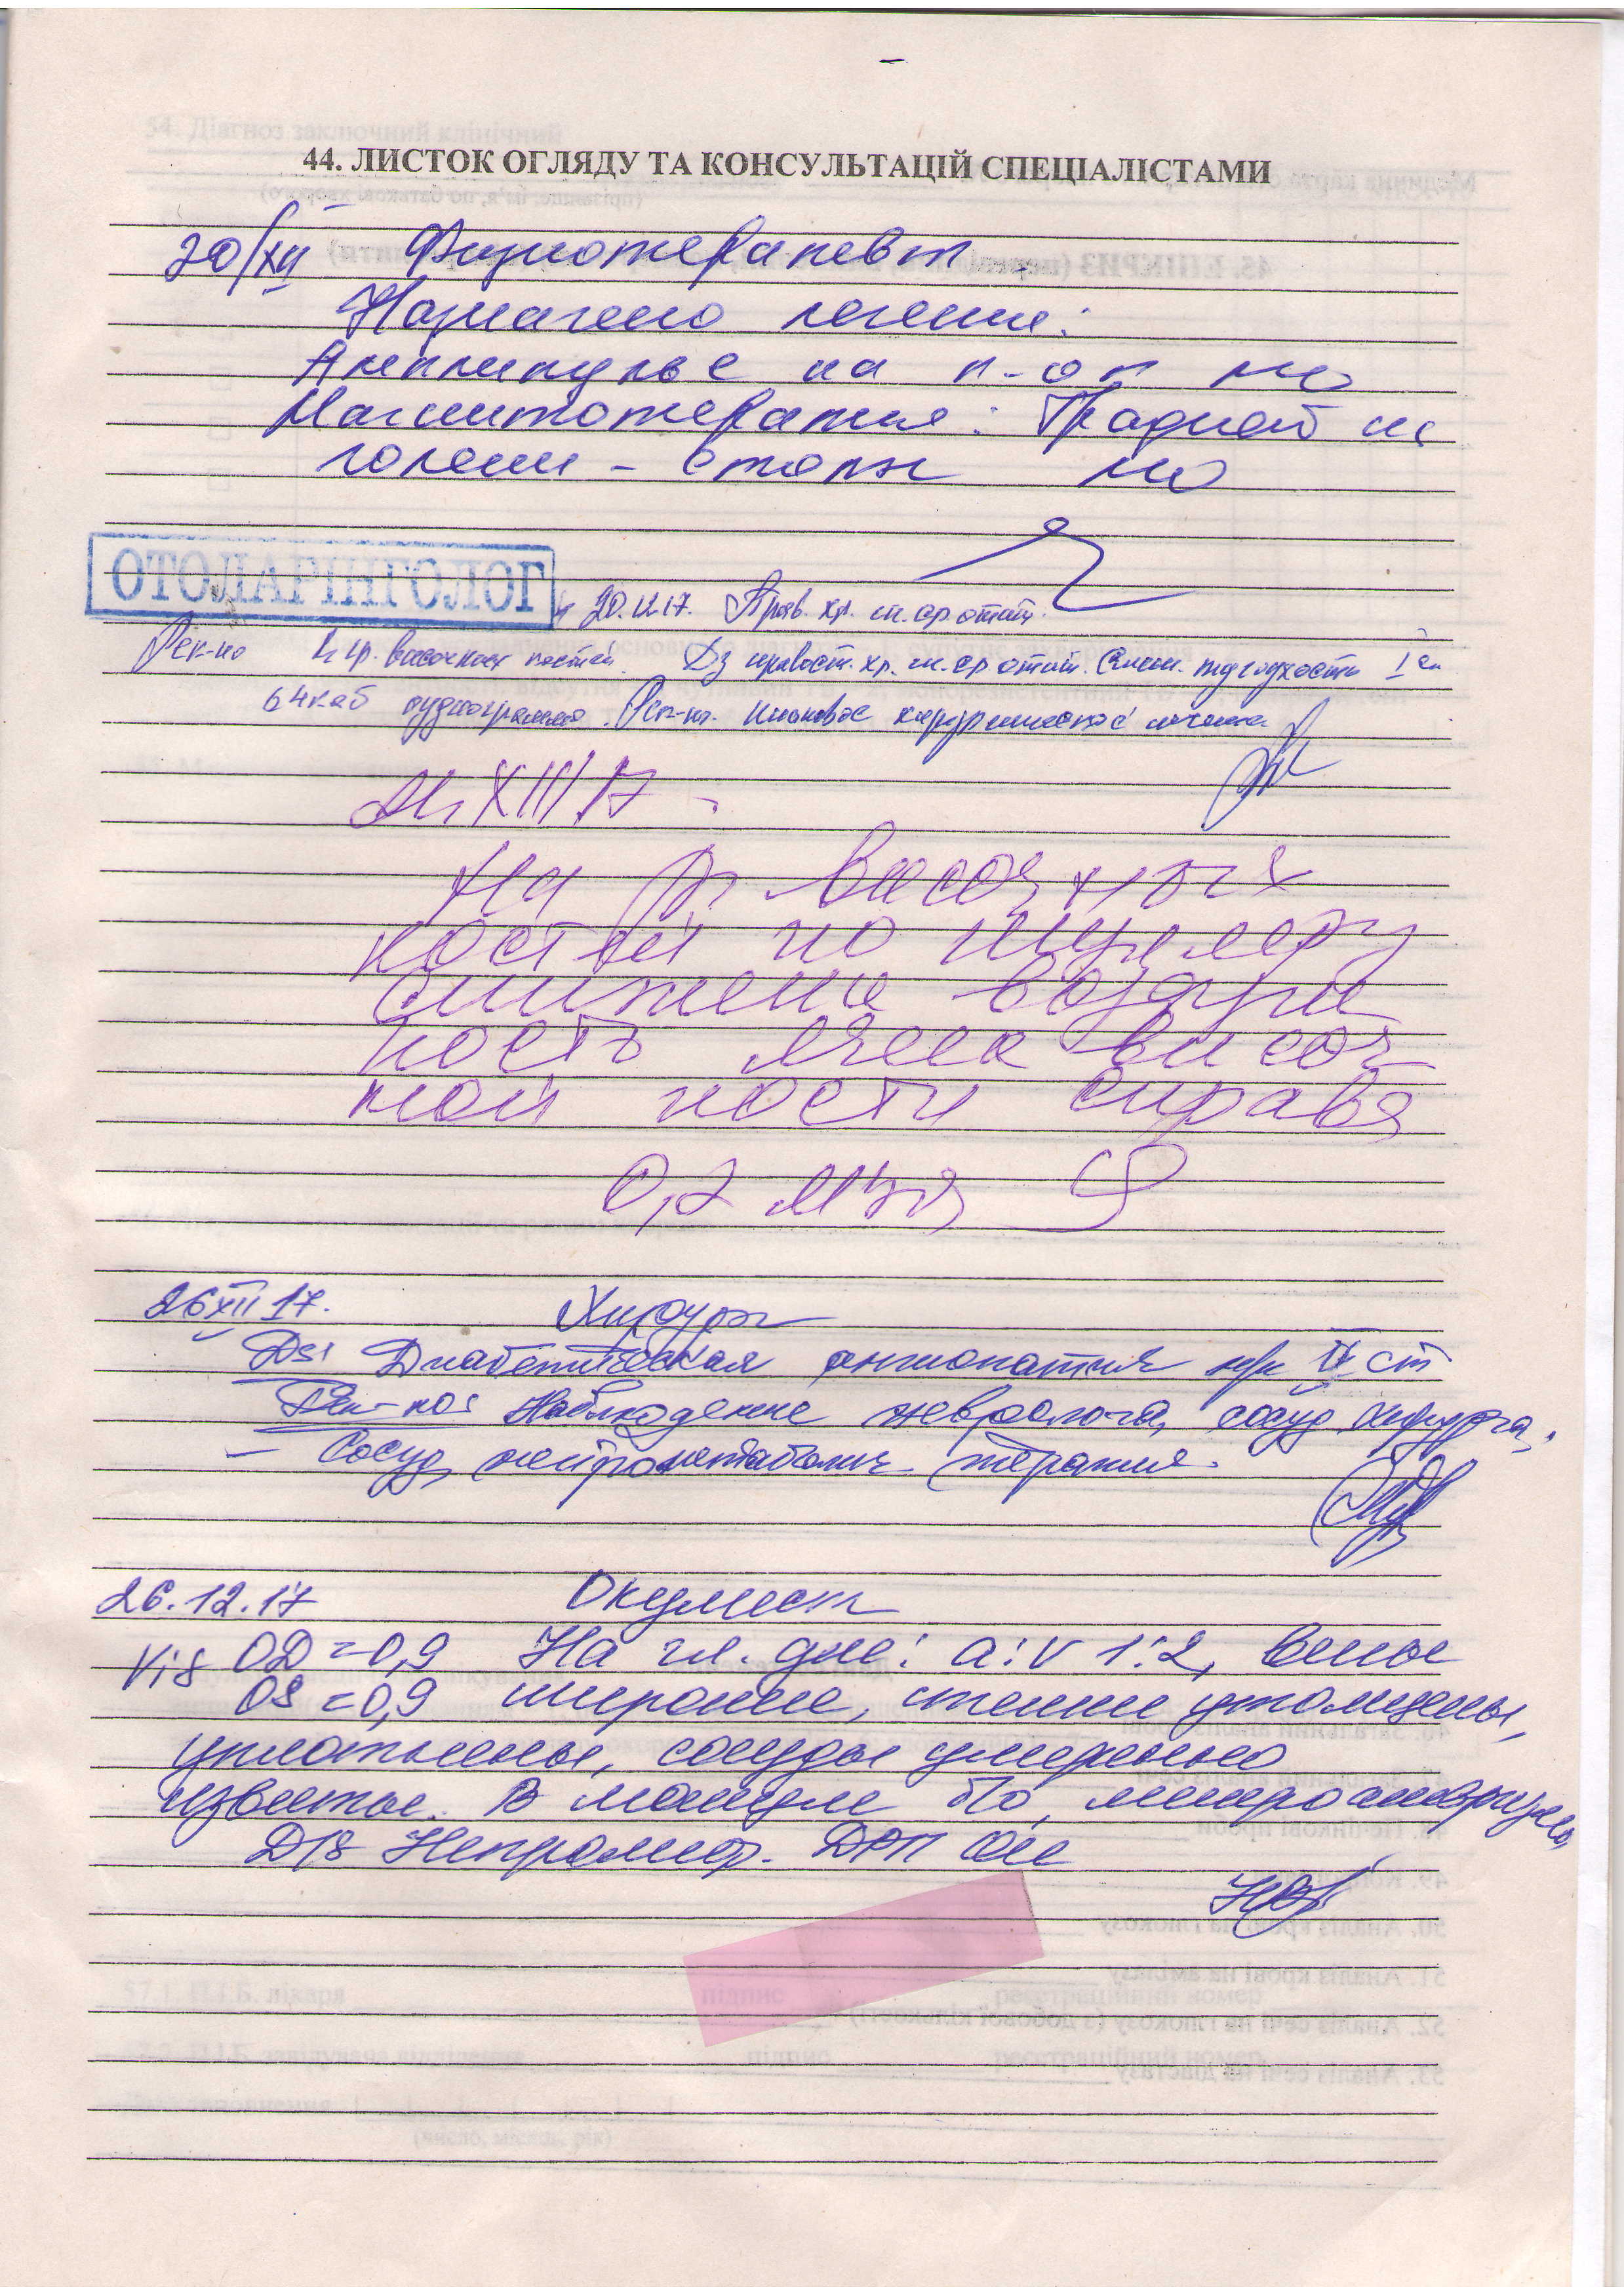 44. ЛИСТОК ОГЛЯДУ ТА КОНСУЛЬТАЦІЙ СПЕЦІАЛІСТАМИ
20/XII Физиотерапевт
Назначено лечение:
Амплипульс на п-о п
Магнитотерапия: Градиент на
голени - стопы
ОТОЛАРІНГОЛОГ
20.12.17. Прав. хр. гн. ср. отит.
Рек-но R гр. височных костей. Dz правост. хр. гн. ср. отит. Смеш. тугоухость I ст
64 каб аудиограмма. Рек-но. плановое хирургическое лечение
XII/17
На R височных
костей по Шуллеру
снижена воздуш
ность ячеек височ
ной кости справа
0,2 мЗв
26 XII 17. Хирург
Ds: Диабетическая ангиопатия н/к II ст
Рек-но: Наблюдение невролога, сосуд хирурга,
- Сосуд, нейрометаболич. терапия.
26.12.17 Окулист
Vis OD = 0,9 На гл. дне: a:v 1:2, вены
OS = 0,9 широкие, стенки утолщены,
уплотнены, сосуды умеренно
извиты. В макуле б/о, микроаневризмы
D/s Непролифер. ДРП